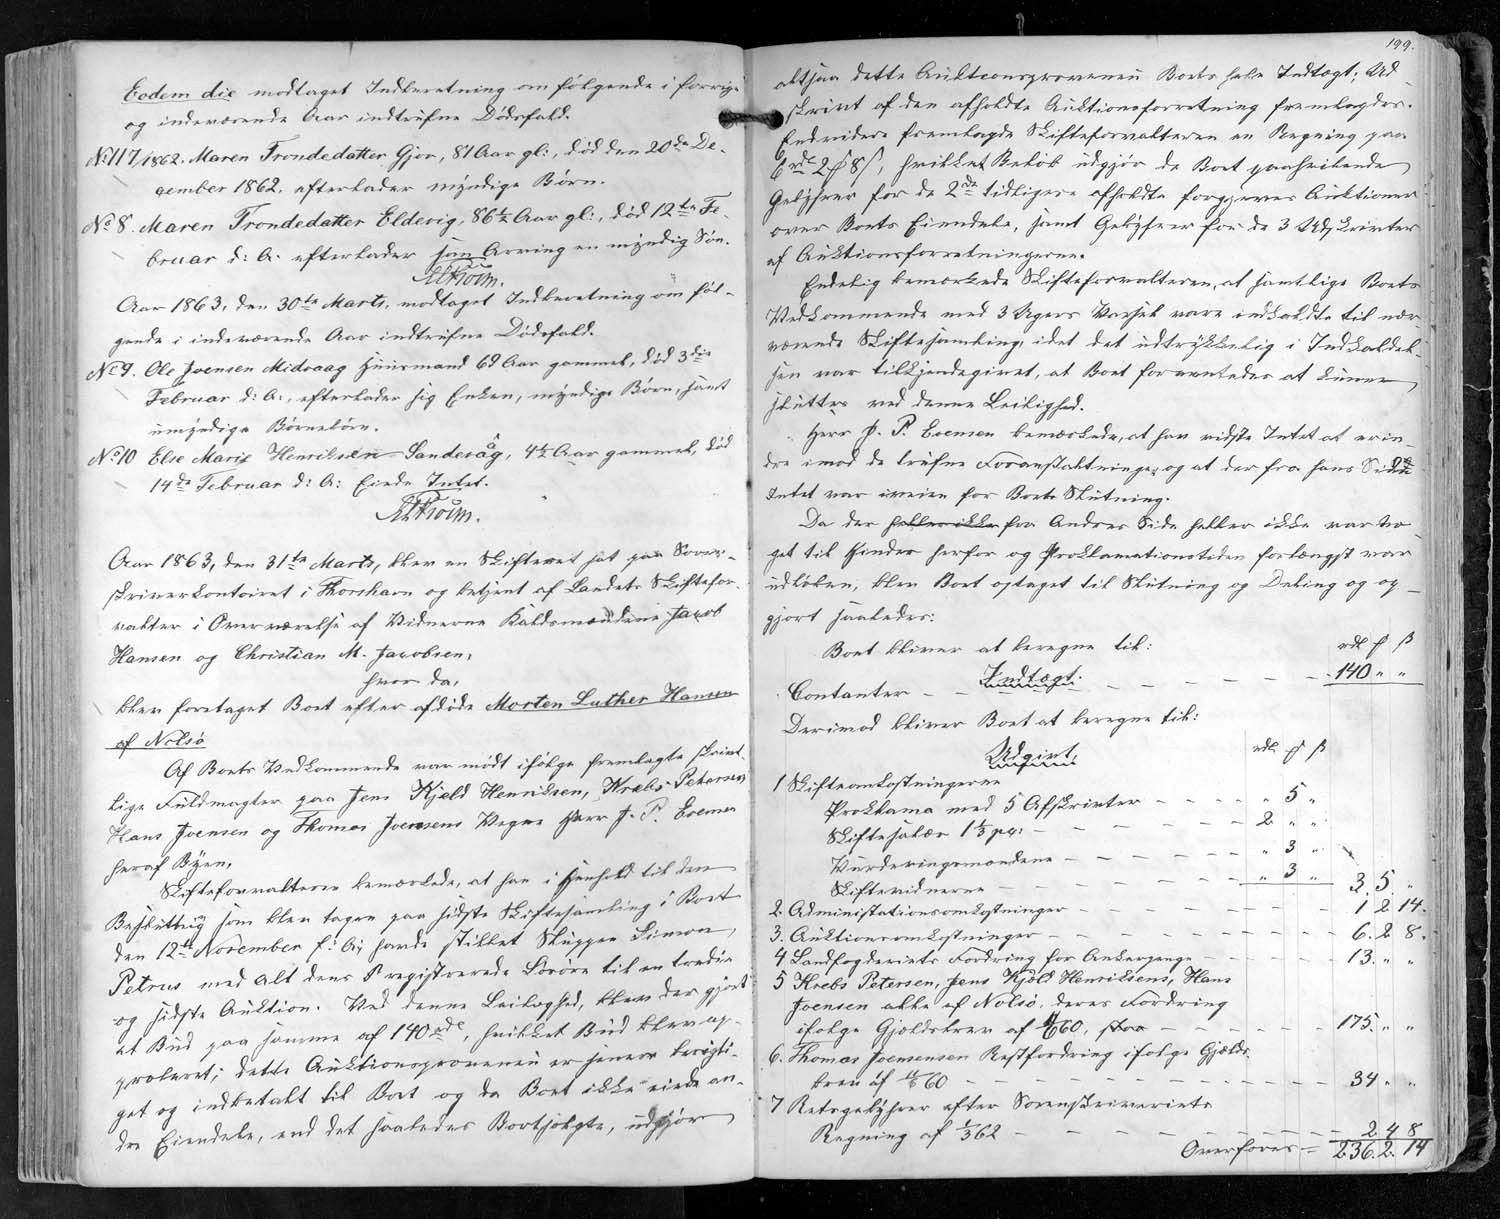 Eodem die modtaget Indberetning om følgende i forrige
og indeværende Aar indtrufne Dødsfald.
No 117/1862. Maren Trondedatter Gjov, 81 Aar gl:, død den 20de De-
cember 1862, efterlader myndige Børn.
No 8. Maren Trondedatter Eldevig, 86½ Aar gl:, død 12te Fe-
bruar d: A: efterlader som Arving en myndig Søn.
Aar 1863, den 30te Marts, modtaget Indberetning om føl-
gende i indeværende Aar indtrufne Dødsfald.
No 9. Ole Joensen Midvaag Huusmand 69 Aar gammel, død 3die
Februar d: A:, efterlader sig Enken, myndige Børn, samt
umyndige Børnebørn.
No 10 Else Marie Henriksen Sandevåg, 4½ Aar gammel, død
14de Februar d: A: Eiede Intet.
Aar 1863, den 31te Marts, blev en Skifteret sat paa Soren-
skriverkontoiret i Thorshavn og betjent af Landets Skiftefor-
valter i Overværelse af Vidnerne Kaldsmændene Jacob
Hansen og Christian M. Jacobsen,
hvor da,
blev foretaget Boet efter afdøde Morten Luther Hansen
af Nolsø
Af Boets Vedkommende var mødt ifølge fremlagte skrivt-
lige Fuldmagter paa Jens Kjeld Henriksen, Krebs Petersen
Hans Joensen og Thomas Joensens Vegne Herr J. P. Evensen
heraf Byen,
Skifteforvalteren bemærkede, at han i Henhold til den
Beslutning som blev tagen paa sidste Skiftesamling i Boet
den 12te November f: A: havde stillet Skuppen Simon
Petrus med alt dens registrerede Løsøre til en tredie
og sidste Auktion. Ved denne Leilighed, blev der gjort
et Bud paa samme af 140 rdl, hvilket Bud blev ap-
proberet; dette Auktionsprovenu er senere berigti-
get og indbetalt til Boet og da Boet ikke eiede an-
dre Eiendele, end det saaledes Bortsolgte, udgjør
199.
altsaa dette Auktionsprovenu Boets hele Indtægt; Ud-
skrivt af den afholdte Auktionsforretning fremlagdes.
Endvidere fremlagde Skifteforvalteren en Regning paa
6 rdl 2 ₰ 8 ß, hvilket Beløb udgjør de Boet paahvilende
Gebyhrer for de 2de tidligere afholdte forgjeves Auktioner
over Boets Eiendele, samt Gebyhrer for de 3 Udskrivter
af Auktionsforretningerne.
Endelig bemærkede Skifteforvalteren, at samtlige Boets
Vedkommende med 3 Ugers Varsel vare indkaldte til nær-
værende Skiftesamling, idet det udtrykkelig i Indkaldel-
sen var tilkjendegivet, at Boet forventedes at kunne
sluttes ved denne Leilighed.
Herr J. P. Evensen bemærkede, at han vidste Intet at erin-
dre imod de trufne Foranstaltninger og at der fra hans Side
Intet var iveien for Boets Slutning.
Da der heller ikke fra Andres Side heller ikke var No-
get til Hinder herfor og Proklamationstiden forlængst var
udløben, blev Boet optaget til Slutning og Deling og op-
gjort saaledes:
Boet bliver at beregne til: rdl ₰ ß
Indtægt.
Contanter - - - - - - - 140 " "
Derimod bliver Boet at beregne til:
Udgivt, rdl ₰ ß
1 Skifteomkostningerne
Proklama med 5 Afskrivter - - - - " 5 "
Skiftesalær 1⅓ pC: - - - - 2 " "
Vurderingsmændene - - - - " 3 "
Skiftevidnerne - - - - " 3 " 3. 5. "
2. Administationsomkostninger - - - - 1 2 14.
3. Auktionsomkostninger - - - - 6. 2 8.
4 Landfogderiets Fordring for Ankergange - - - - 13. " "
5 Krebs Petersen, Jens Kjeld Henriksens, Hans
Joensen alle af Nolsø, deres Fordring
ifølge Gjeldsbrev af 60, stor - - - - 175. " "
6. Thomas Joensensen Restfordring ifølge Gjelds
brev af 60 - - - - 34 " "
7 Retsgebyhrer efter Sorenskriveriets
Regning af 1/3 62 - - - - 2 4 8
Overføres = 236. 2. 14